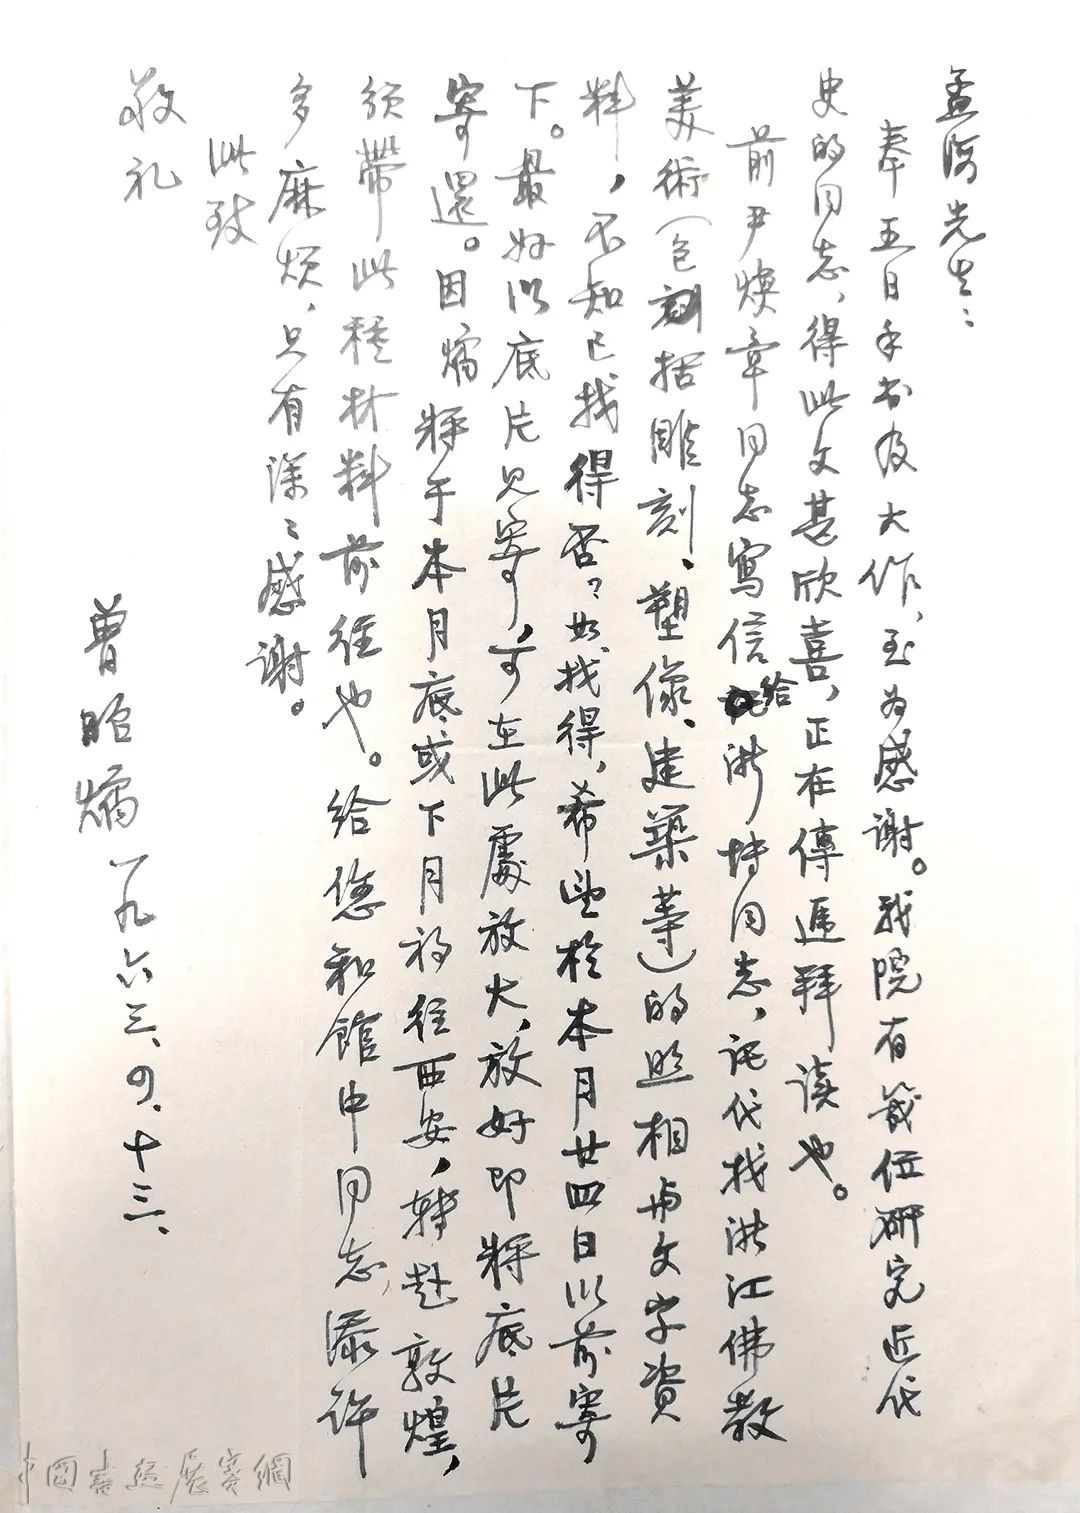 孟海先生：
奉五日手书及大作，至为感谢。我院有几位研究近代
史的同志，得此文甚欣喜，正在傳遞拜读也。
前尹焕章同志寫信给浙博同志，託代找浙江佛教
美術（包括雕刻、塑像、建築等）的照相与文字資
料，不知已找得否？如找得，希望於本月廿四日以前寄
下。最好以底片见寄，可在此處放大，放好即将底片
寄還。因燏将于本月底或下月初往西安，转赴敦煌，
须带此種材料前往也。给您和館中同志添许
多麻烦，只有深々感谢。
此致
敬礼
曾昭燏 一九六三、四、十三、
中國書法展賽網